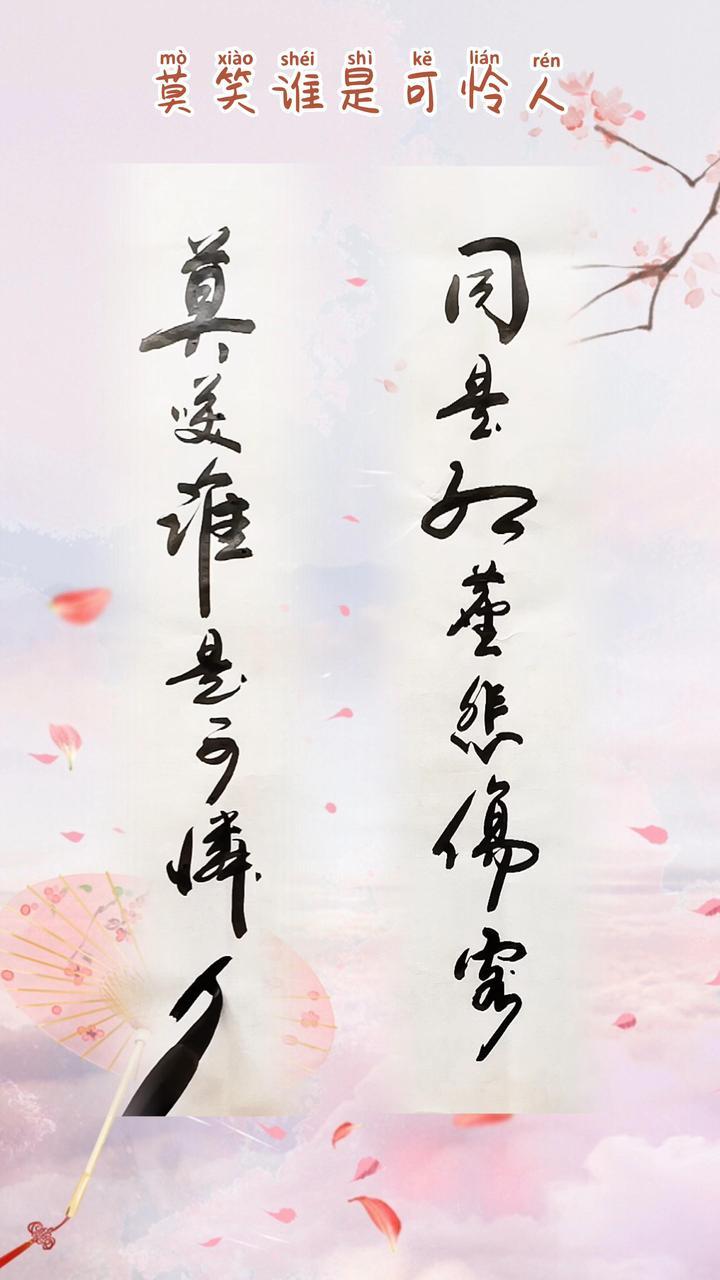 mò xiào shéi shì kě lián rén
莫笑谁是可怜人
同是红塵悲傷客
莫咲誰是可憐人